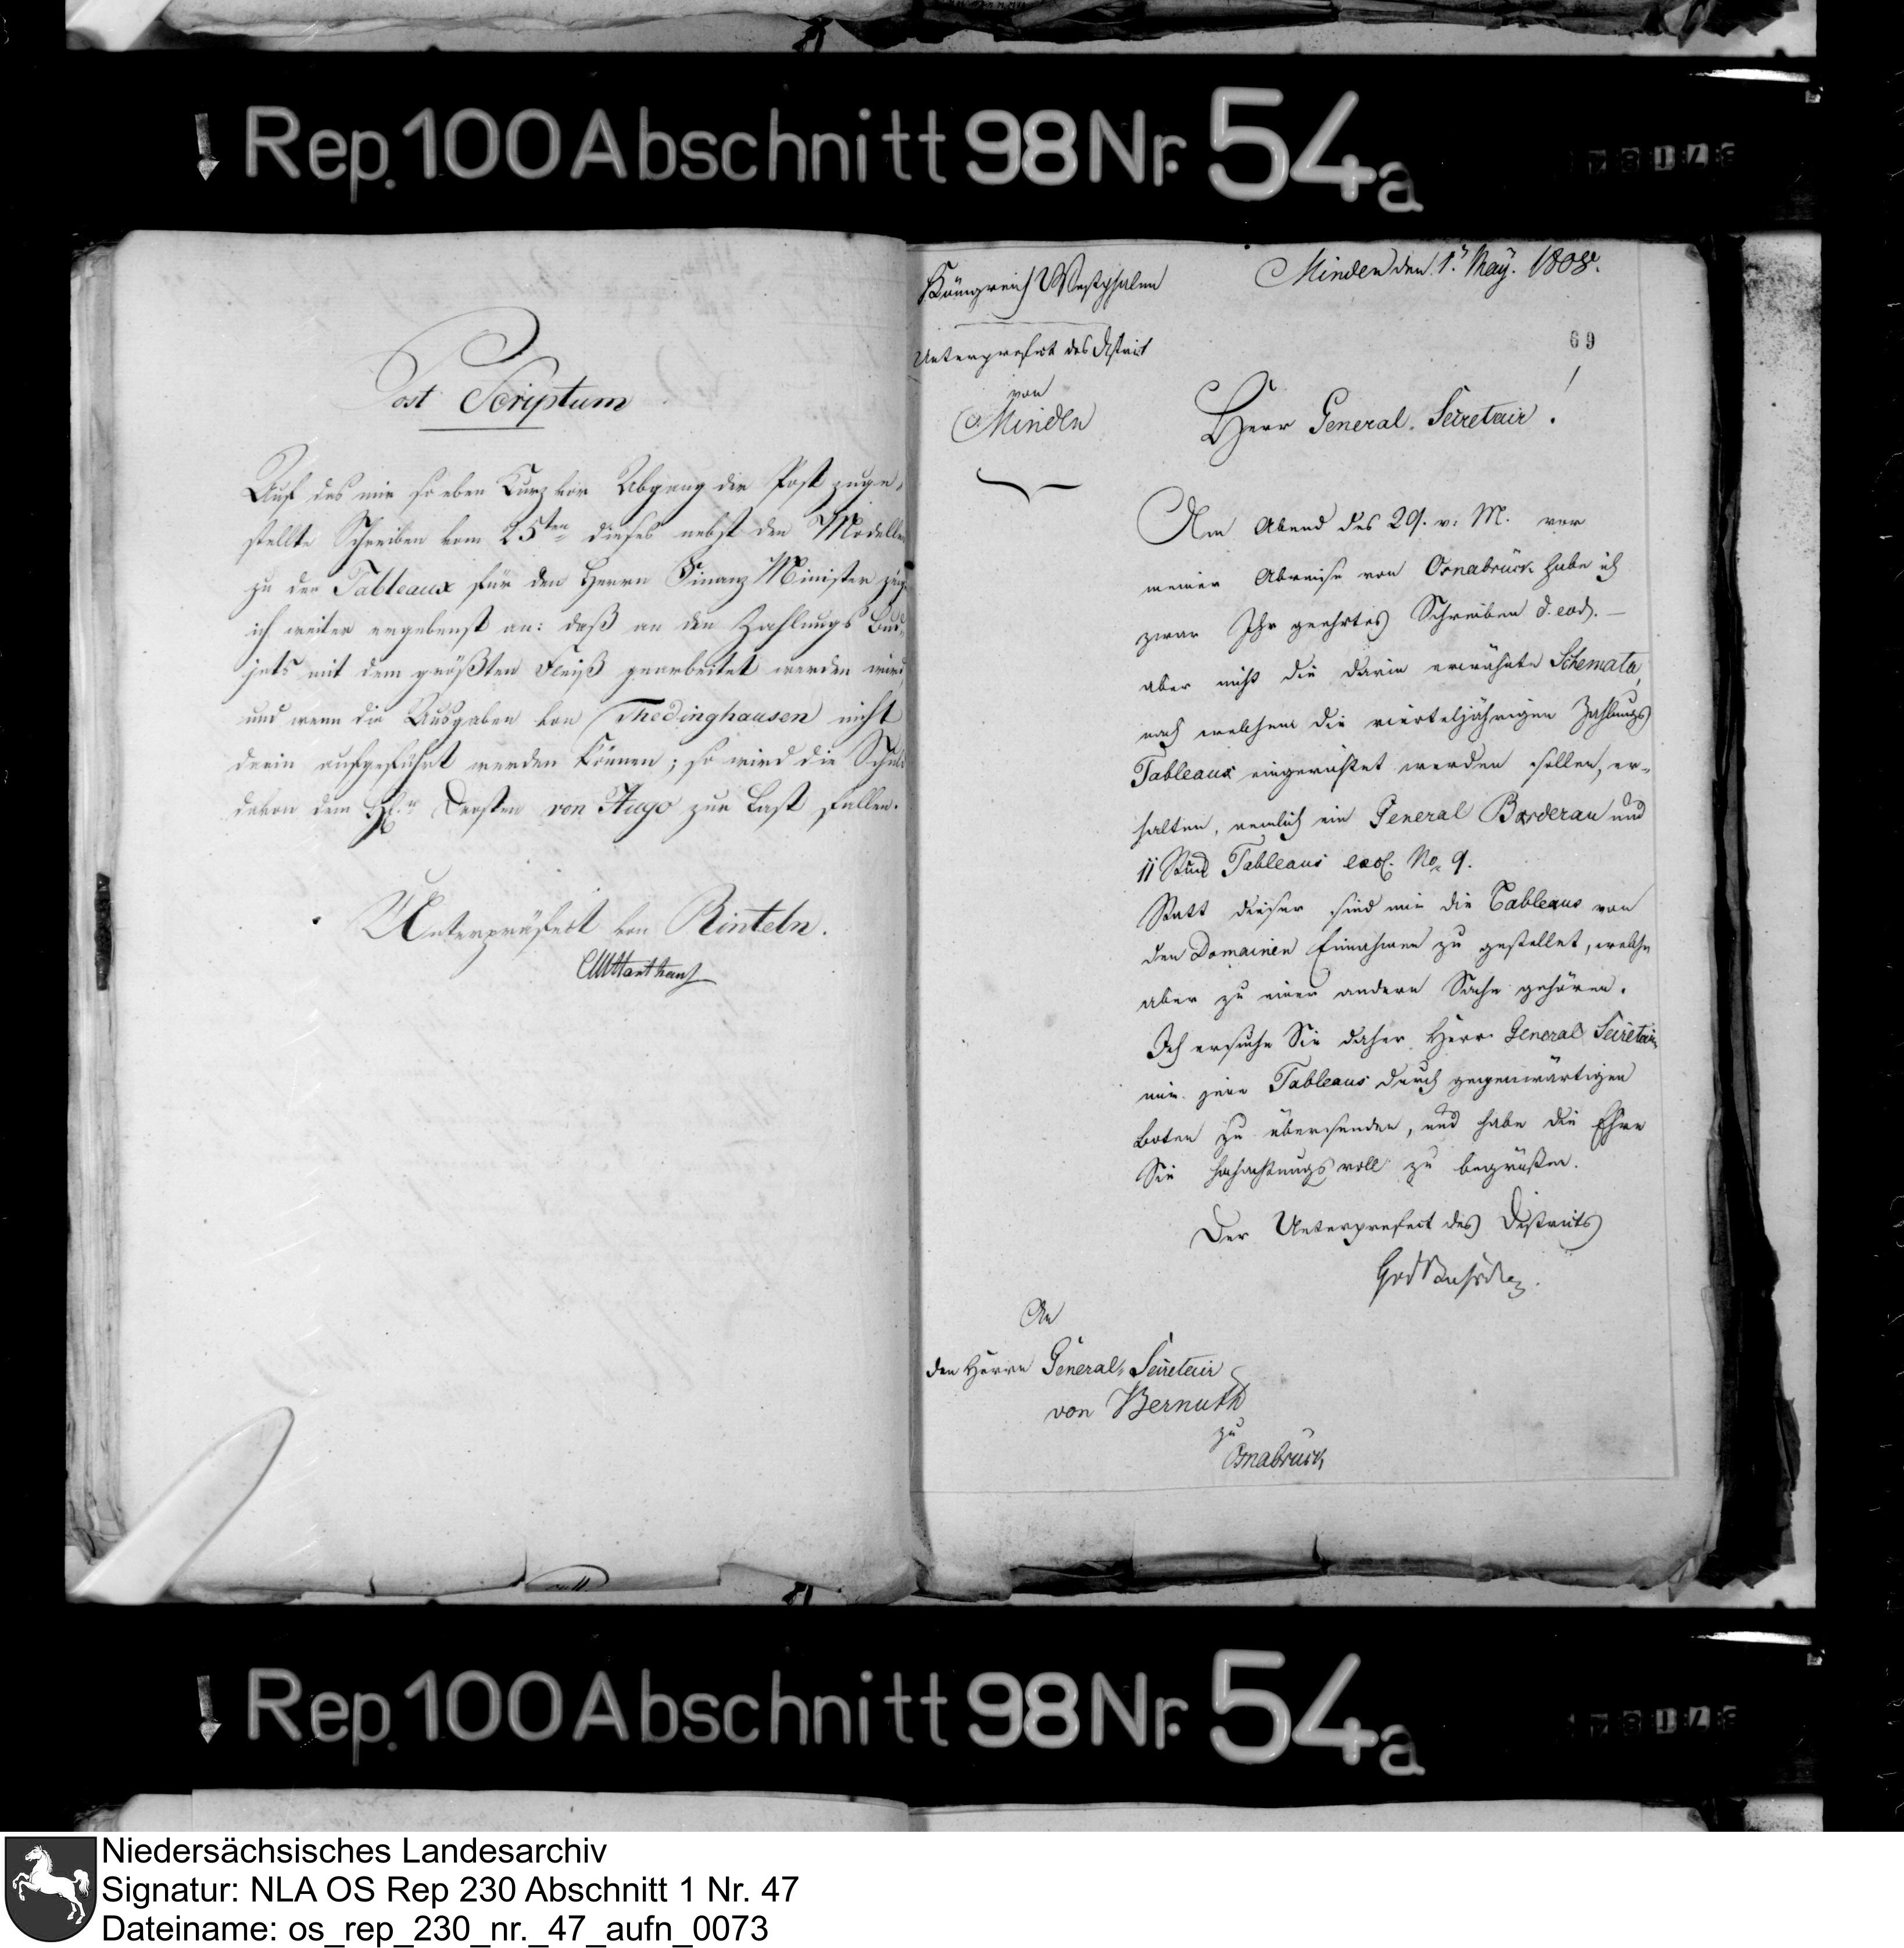 Rep. 100 Abschnitt 98 Nr. 54a
Post Scriptum
Auf das mir so eben Kurz vor Abgang der Post zuge-
stellte Schreiben vom 25ten dieses nebst den Modellen
zu den Tableaux für den Herrn Finanz Minister zeige
ich weiter ergebenst an: daß an den Zahlungs Bud-
jets mit dem größten Fleiß gearbeitet werden wird,
und wenn die Ausgaben von Thedinghausen nicht
darin aufgeführt werden können; so wird die Schuld
davon dem H. Drosten von Hugo zur Last fallen.
Unterpräfect von Rinteln.
Königreich Westphalen
Unterprefect des District
von
Minden
Minden den 1. May. 1808.
69
Herr General-Secretair!
Am Abend des 29. v. M. vor
meiner Abreise von Osnabrück habe ich
zwar Ihr geehrtes Schreiben d. eod. —
aber nicht die darin erwähnte Schemata,
nach welchem die vierteljährigen Zahlungs
Tableaus eingerichtet werden sollen, er-
halten, nemlich ein General Borderau und
11 Stück Tableaus excl. No. 9.
Statt dieser sind mir die Tableaus von
den Domainen Einnahmen zu gestellet, welche
aber zu einer andern Sache gehören.
Ich ersuche Sie daher Herr General Secretair
mir jene Tableaus durch gegenwärtigen
Boten zu übersenden, und habe die Ehre
Sie hochachtungsvoll zu begrüßen.
Der Unterprefect des Districts
An
den Herrn General-Secretair
von Bernuth
zu
Osnabrück
Rep. 100 Abschnitt 98 Nr. 54a
Niedersächsisches Landesarchiv
Signatur: NLA OS Rep 230 Abschnitt 1 Nr. 47
Dateiname: os_rep_230_nr._47_aufn_0073